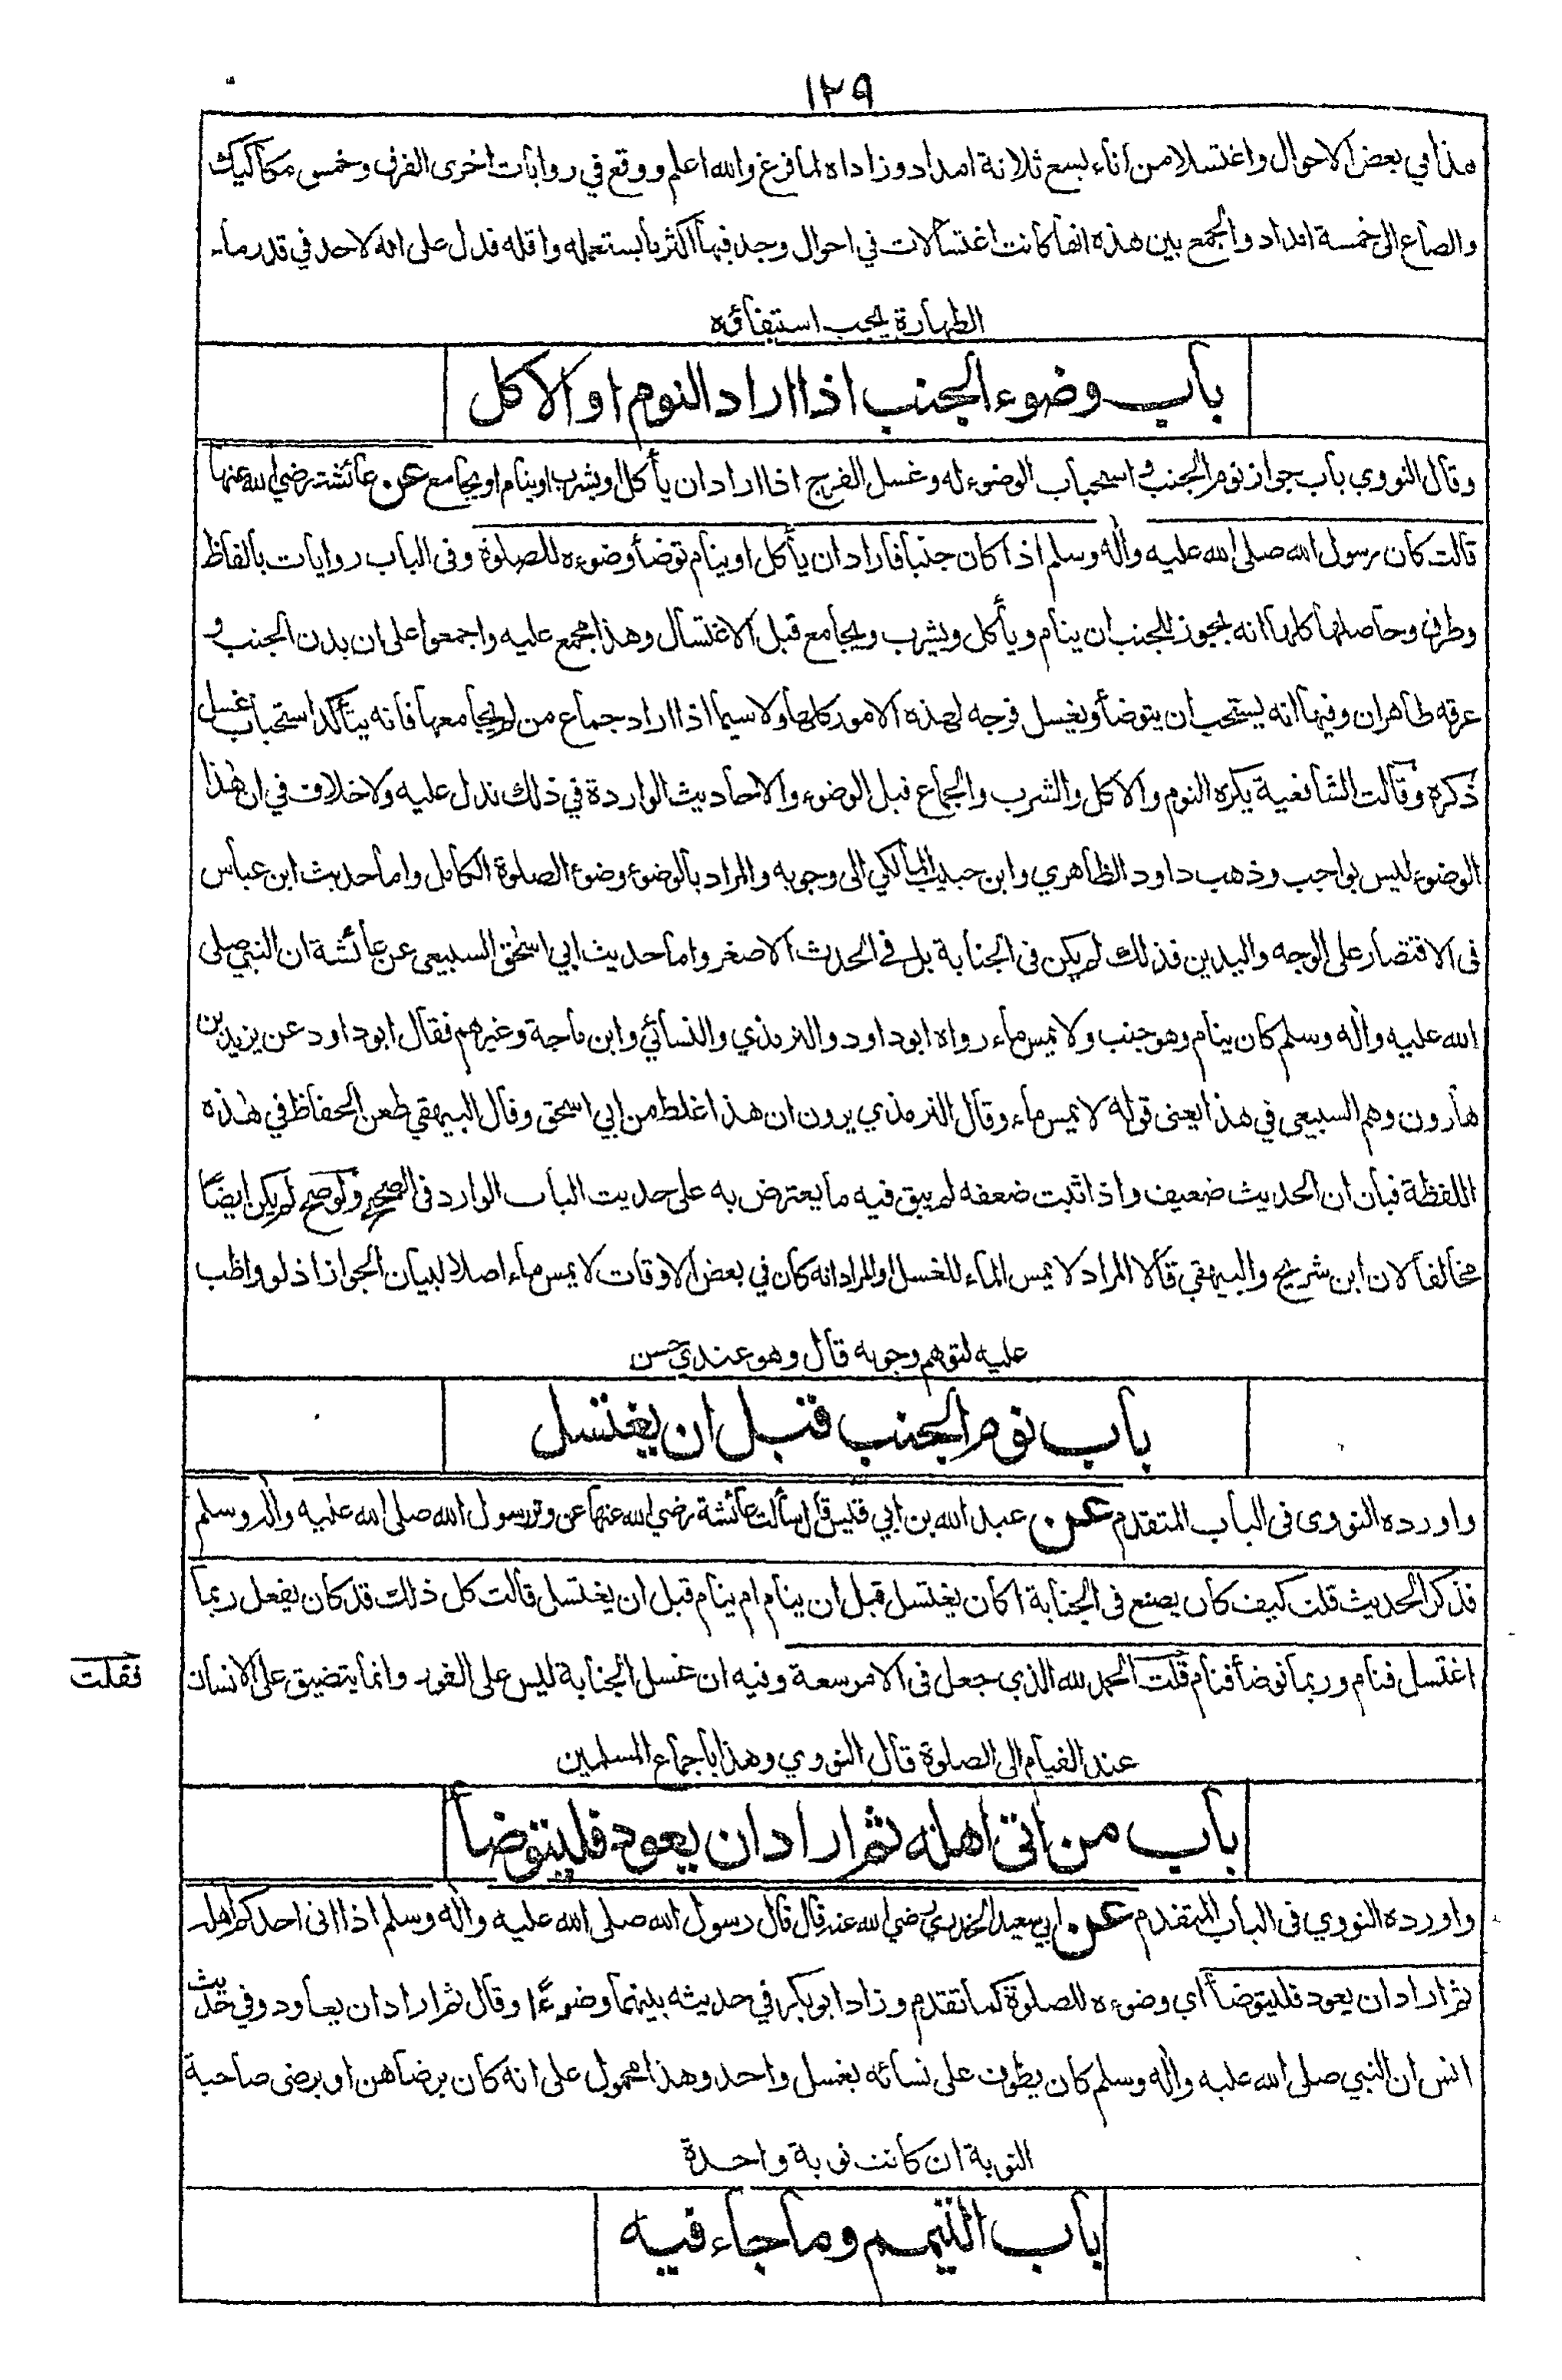 ١٢٩
هذا في بعض الاحوال واغتسلا من اناء يسع ثلاثة امداد وزاداه لما فرغ والله اعلم ووقع في روايات اخرى الفرق وخمس مكاكيك
والصاع الى خمسة امداد والجمع بين هذه انها كانت اغتسالات في احوال وجد فيها اكثر ما يستعمله واقله فدل على انه لا حد في قدر ماء
الطهارة يجب استيفاؤه
باب وضوء الجنب اذا اراد النوم او الاكل
وقال النووي باب جواز نوم الجنب واستحباب الوضوء له وغسل الفرج اذا اراد ان ياكل او يشرب او ينام او يجامع عن عائشة رضي الله عنها
قالت كان رسول الله صلى الله عليه واله وسلم اذا كان جنبا فاراد ان يأكل او ينام توضأ وضوءه للصلوة وفى الباب روايات بالفاظ
وطرق وحاصلها كلها انه يجوز للجنب ان ينام ويأكل ويشرب ويجامع قبل الاغتسال وهذا مجمع عليه واجمعوا على ان بدن الجنب و
عرقه طاهران وفيها انه يستحب ان يتوضأ ويغسل فرجه لهذه الامور كلها ولا سيما اذا اراد جماع من لم يجامعها فانه يتأكد استحباب غسل
ذكره وقالت الشافعية يكره النوم والاكل والشرب والجماع قبل الوضوء والاحاديث الواردة في ذلك تدل عليه ولا خلاف في ان هذا
الوضوء ليس بواجب وذهب داود الظاهري وابن حبيب المالكي الى وجوبه والمراد بالوضوء وضوء الصلوة الكامل واما حديث ابن عباس
فى الاقتصار على الوجه واليدين فذلك لم يكن فى الجنابة بل في الحدث الاصغر واما حديث ابي اسحق السبيعى عن عائشة ان النبي صلى
الله عليه واله وسلم كان ينام وهو جنب ولا يمس ماء رواه ابو داود والترمذي والنسائي وابن ماجة وغيرهم فقال ابو داود عن يزيد بن
هارون وهم السبيعى في هذا يعنى قوله لا يمس ماء وقال الترمذي يرون ان هذا غلط من ابي اسحق وقال البيهقي طعن الحفاظ في هذه
اللفظة فبان ان الحديث ضعيف واذا ثبت ضعفه لم يبق فيه ما يعترض به على حديث الباب الوارد فى الصحيح ولو صح لم يكن ايضا
مخالفا لان ابن شريح والبيهقي قالا المراد لا يمس الماء للغسل او المراد انه كان في بعض الاوقات لا يمس ماء اصلا لبيان الجواز اذ لو واظب
عليه لتوهم وجوبه قال وهو عندي حسن
باب نوم الجنب قبل ان يغتسل
واورده النووى فى الباب المتقدم عن عبد الله بن ابي قيس قال سألت عائشة رضي الله عنها عن وتر رسول الله صلى الله عليه واله وسلم
فذكر الحديث قلت كيف كان يصنع فى الجنابة اكان يغتسل قبل ان ينام ام ينام قبل ان يغتسل قالت كل ذلك قد كان يفعل ربما
اغتسل فنام وربما توضأ فنام قلت الحمد لله الذي جعل فى الامر سعة وفيه ان غسل الجنابة ليس على الفور وانما يتضيق على الانسان
فقلت
عند القيام الى الصلوة قال النووي وهذا باجماع المسلمين
باب من اتى اهله ثم اراد ان يعود فليتوضأ
واورده النووي فى الباب المتقدم عن ابي سعيد الخدري رضي الله عنه قال قال رسول الله صلى الله عليه واله وسلم اذا اتى احدكم اهله
ثم اراد ان يعود فليتوضأ اي وضوءه للصلوة كما تقدم وزاد ابو بكر في حديثه بينهما وضوءًا وقال ثم اراد ان يعاود وفي حديث
انس ان النبي صلى الله عليه واله وسلم كان يطوف على نسائه بغسل واحد وهذا محمول على انه كان برضاهن او برضى صاحبة
النوبة ان كانت نوبة واحدة
باب التيمم وما جاء فيه